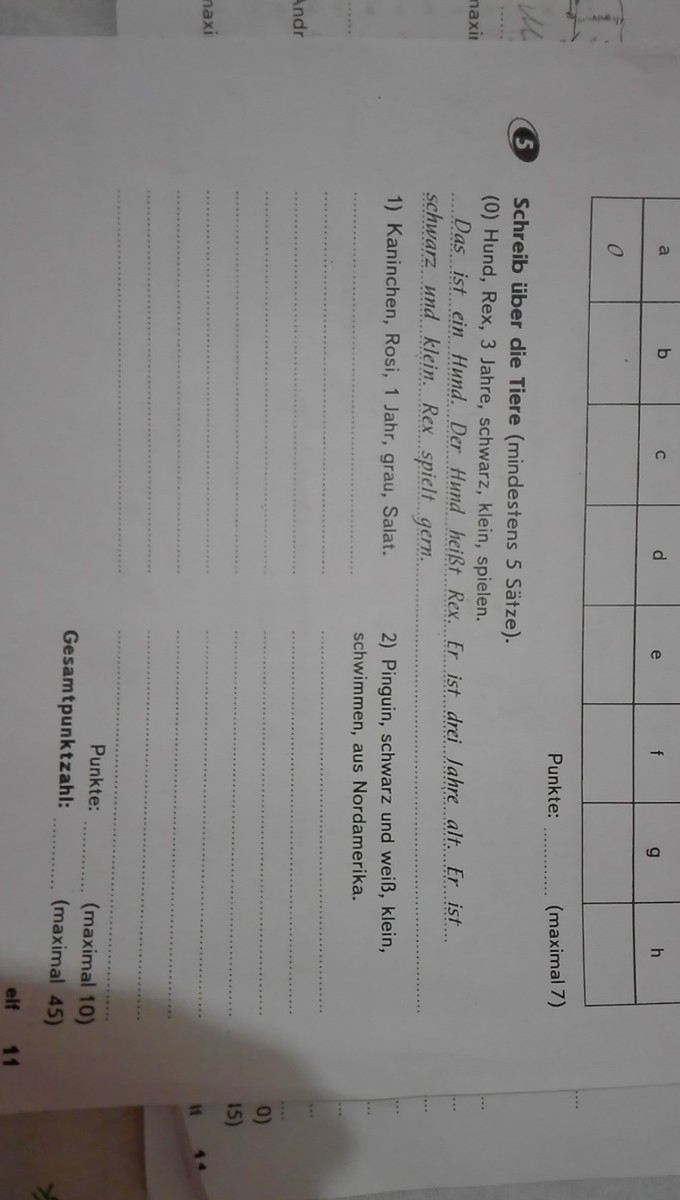 a b c d e f g h
0
Punkte: ............ (maximal 7)
5 Schreib über die Tiere (mindestens 5 Sätze).
(0) Hund, Rex, 3 Jahre, schwarz, klein, spielen.
Das ist ein Hund. Der Hund heißt Rex. Er ist drei Jahre alt. Er ist
schwarz und klein. Rex spielt gern.
1) Kaninchen, Rosi, 1 Jahr, grau, Salat.
2) Pinguin, schwarz und weiß, klein,
schwimmen, aus Nordamerika.
Punkte: ............ (maximal 10)
Gesamtpunktzahl: ............ (maximal 45)
elf 11